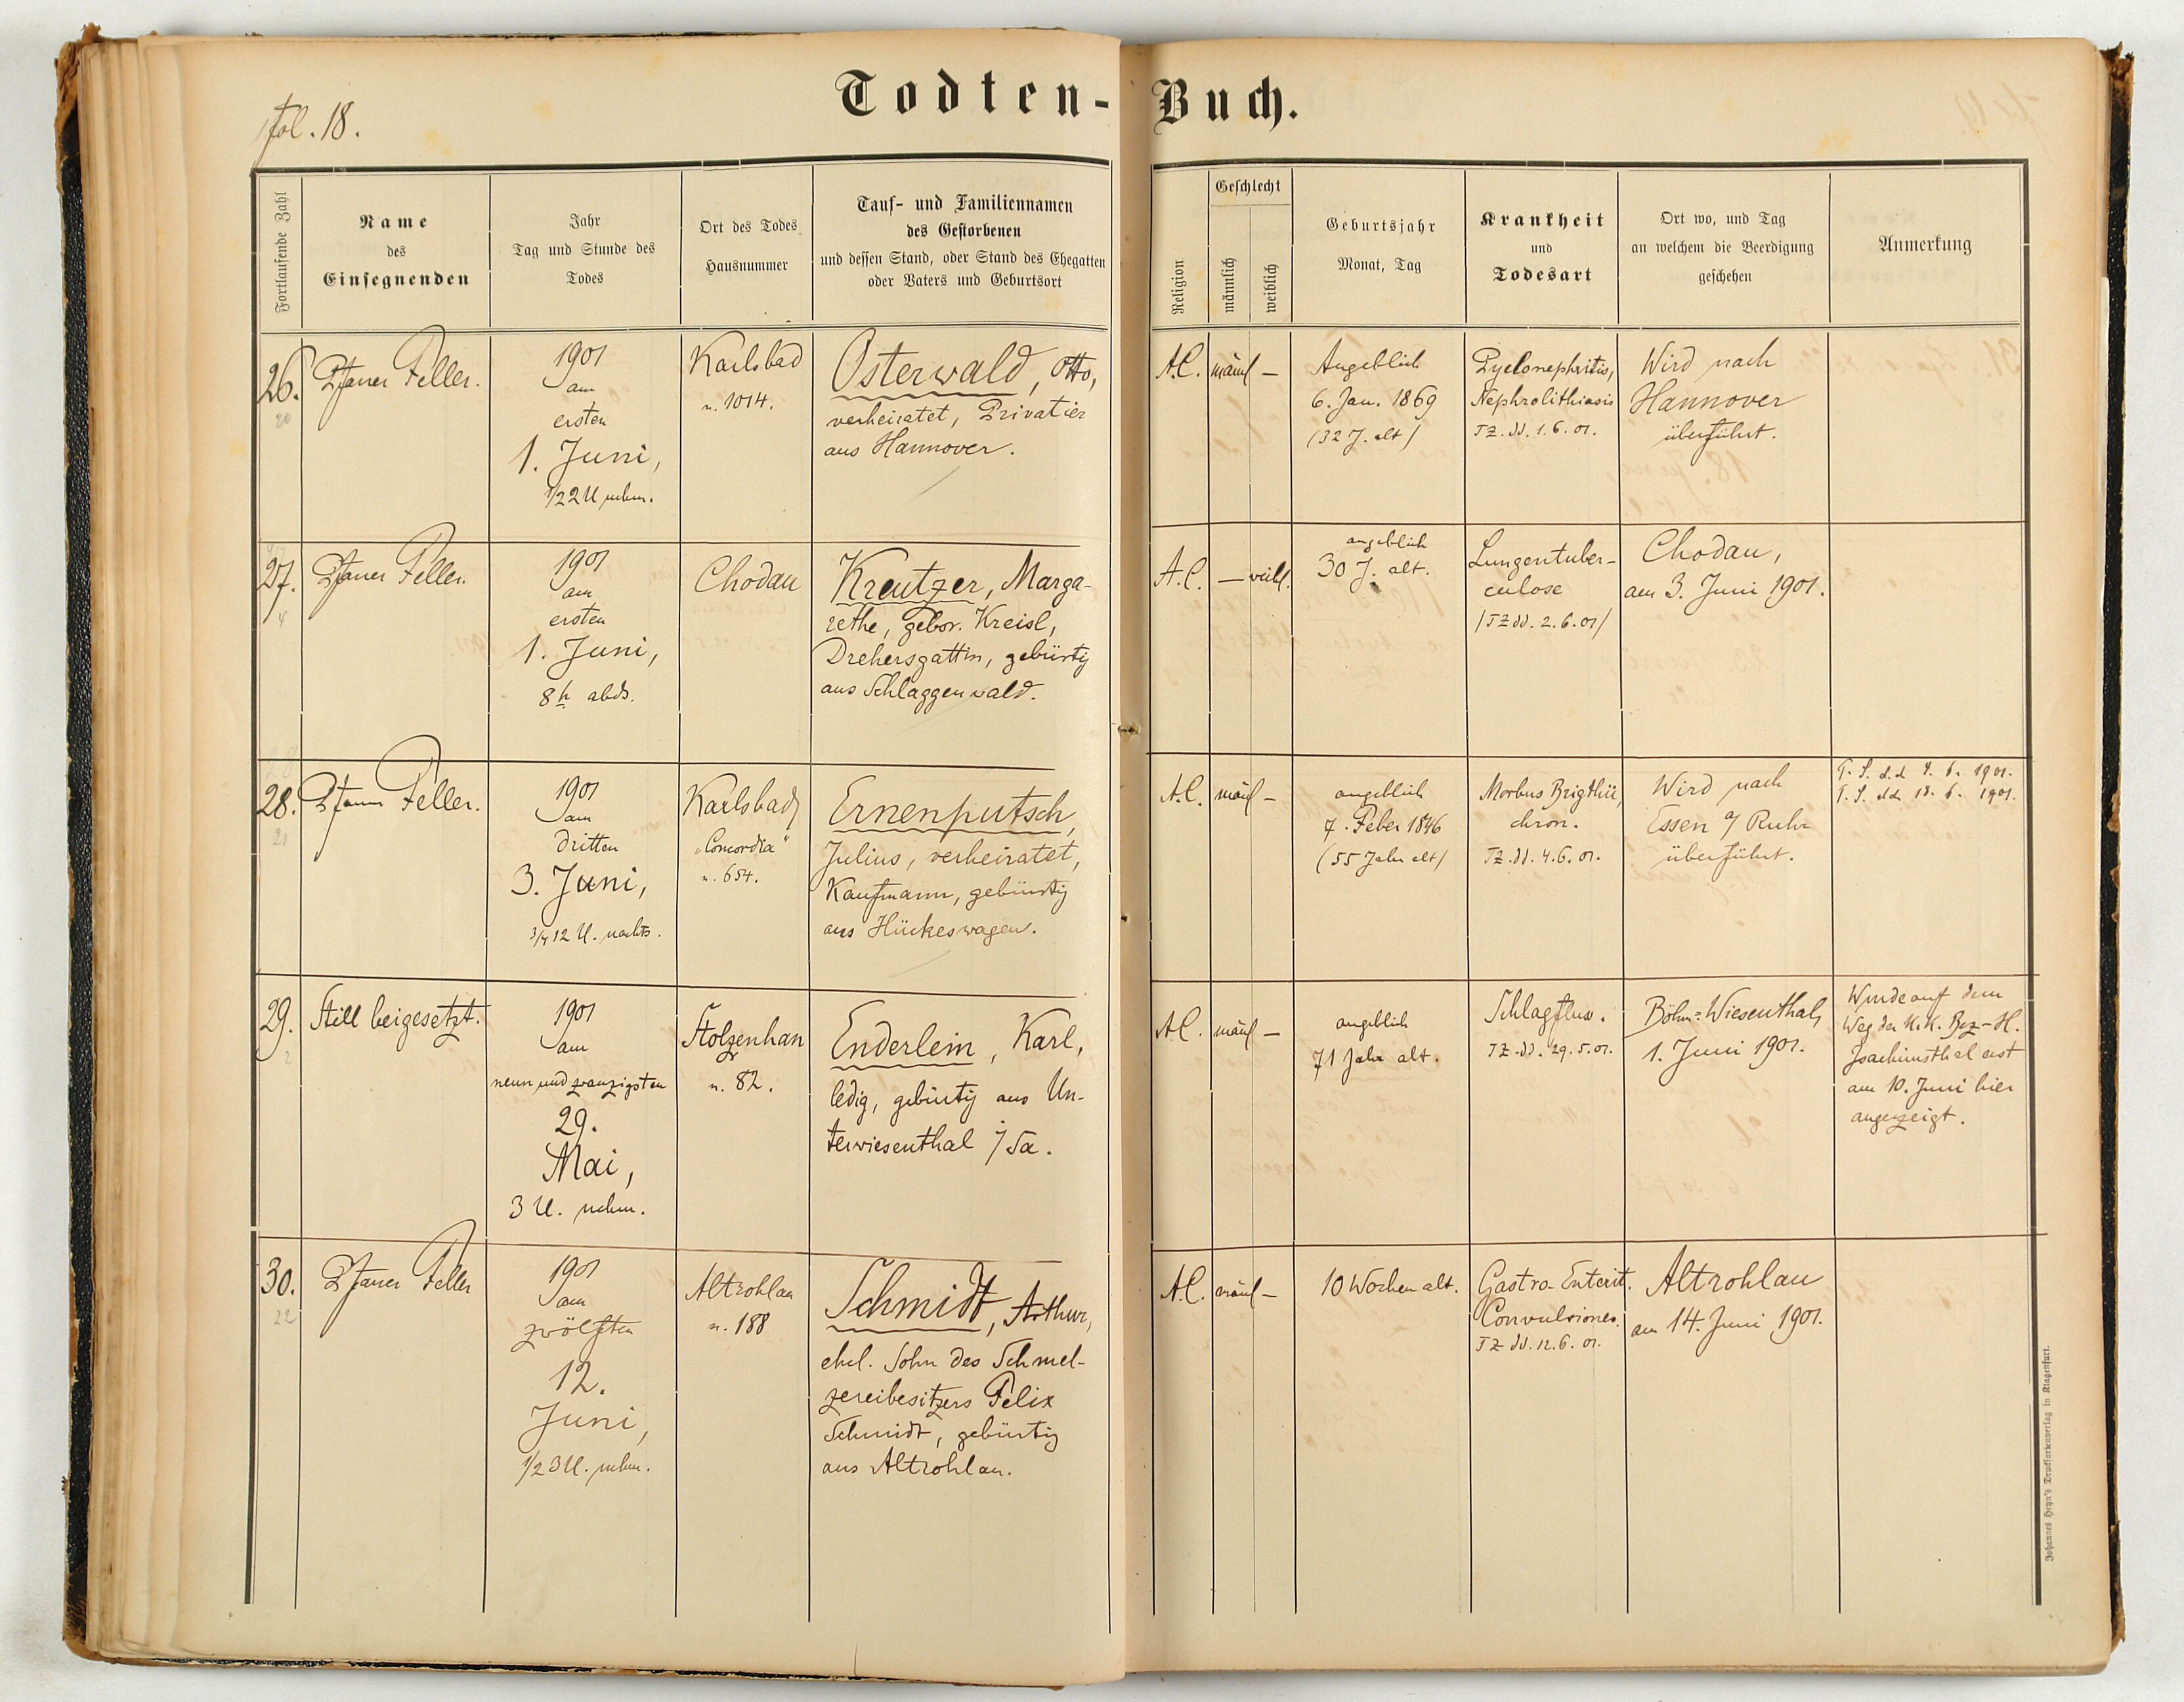 Todten-Buch.
fol. 18.
Fortlaufende Zahl
Name
des
Einsegnenden
Jahr
Tag und Stunde des
Todes
Ort des Todes
Hausnummer
Tauf- und Familiennamen
des Gestorbenen
und dessen Stand, oder Stand des Ehegatten
oder Vaters und Geburtsort
Religion
Geschlecht
männlich
weiblich
Geburtsjahr
Monat, Tag
Krankheit
und
Todesart
Ort wo, und Tag
an welchem die Beerdigung
geschehen
Anmerkung
26.
20
Pfarrer Feller.
1901
am
ersten
1. Juni,
1/2 2 U nchm.
Karlsbad
n. 1014.
Osterwald, Otto,
verheiratet, Privatier
aus Hannover.
A.C.
männl
—
Angeblich
6. Jan. 1869
(32 J. alt)
Pyelonephritis,
Nephrolithiasis
TZ. dd. 1. 6. 01.
Wird nach
Hannover
überführt.
27.
4
Pfarrer Feller.
1901
am
ersten
1. Juni,
8h abds.
Chodau
Kreutzer, Marga-
rethe, gebor. Kreisl,
Drehersgattin, gebürtig
aus Schlaggenwald.
A.C.
—
weibl.
angeblich
30 J. alt.
Lungentuber-
culose
/TZ dd. 2. 6. 01/
Chodau,
am 3. Juni 1901.
28.
21
Pfarrer Feller.
1901
am
dritten
3. Juni,
3/4 12 U. nachts.
Karlsbad,
„Concordia"
n. 654.
Ernenputsch,
Julius, verheiratet,
Kaufmann, gebürtig
aus Hückeswagen.
A.C.
männl
—
angeblich
7. Feber 1846
(55 Jahr alt)
Morbus Brigthii,
chron.
TZ. dd. 4. 6. 01.
Wird nach
Essen a/ Ruhr
überführt.
T. S. d.d 4. 6. 1901.
T. S. dd 18. 6. 1901.
29.
2
Still beigesetzt.
1901
am
neunundzwanzigsten
29.
Mai,
3 U. nchm.
Stolzenhan
n. 82.
Enderlein, Karl,
ledig, gebürtig aus Un-
terwiesenthal i/Sa.
A.C.
männl
—
angeblich
71 Jahr alt.
Schlagfluss.
TZ. dd. 29. 5. 01.
Böhm: Wiesenthal,
1. Juni 1901.
Wurde auf dem
Weg der K.K. Bez-H.
Joachimsthal erst
am 10. Juni hier
angezeigt.
30.
22
Pfarrer Feller
1901
am
zwölften
12.
Juni,
1/2 3 U. nchm.
Altrohlau
n. 188
Schmidt, Arthur,
ehel. Sohn des Schmel-
zereibesitzers Felix
Schmidt, gebürtig
aus Altrohlau.
A.C.
männl
—
10 Wochen alt.
Gastro-Enterit.
Convulsiones.
TZ dd. 12. 6. 01.
Altrohlau
am 14. Juni 1901.
Johannes Heyn's Drucksortenverlag in Klagenfurt.